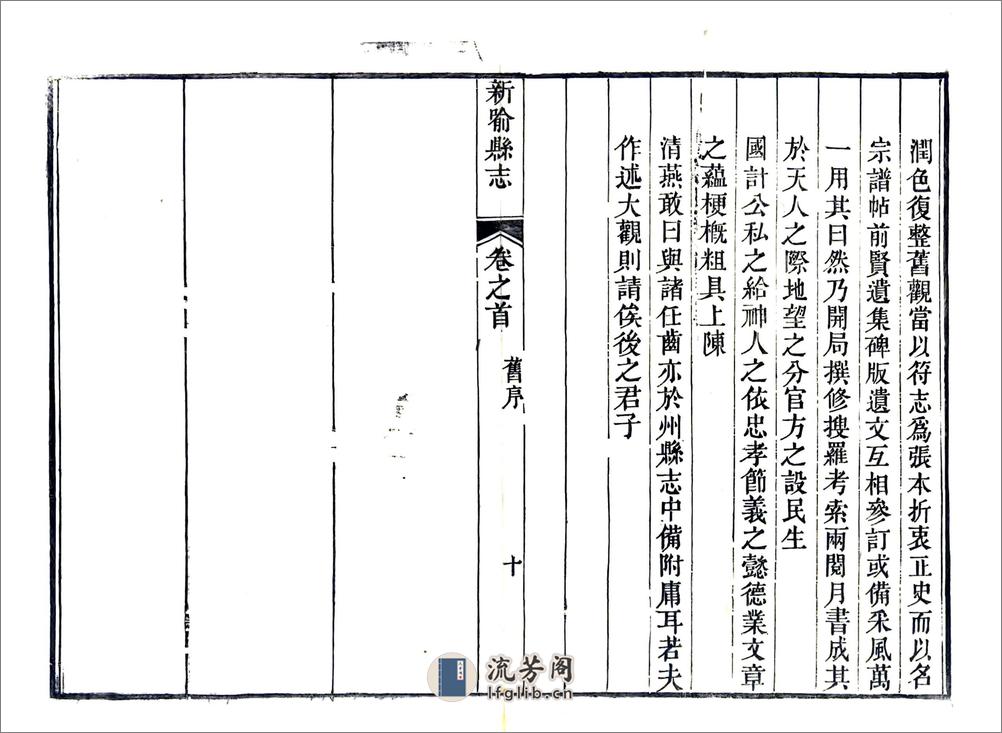 潤色復整舊觀當以符志爲張本折衷正史而以名
宗譜帖前賢遺集碑版遺文互相參訂或備采風萬
一用其曰然乃開局撰修搜羅考索兩閱月書成其
於天人之際地望之分官方之設民生
國計公私之給神人之依忠孝節義之懿德業文章
之蘊梗概粗具上陳
清燕敢曰與諸任齒亦於州縣志中備附庸耳若夫
作述大觀則請俟後之君子
新喻縣志
卷之首
舊序
十
流芳阁
lfglib.cn